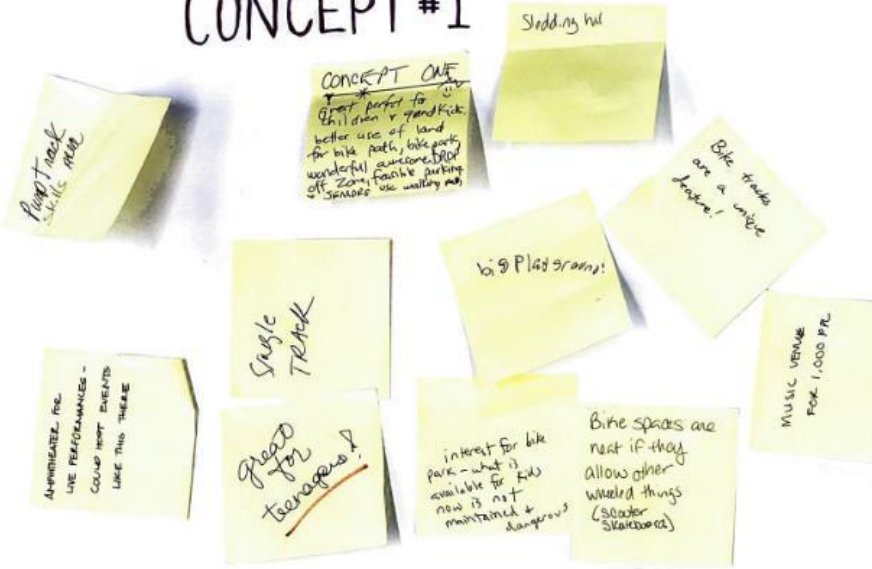 CONCEPT #1
Sledding hill
Pump Track
Skills Area
CONCEPT ONE
Great perfect for
children & grandkids.
better use of land
for bike path, bike park
wonderful awesome DROP
off Zone, feasible parking
SENIORS use walking path
Bike tracks
are a unique
feature!
Single
TRACK
big Playground!
MUSIC VENUE
FOR 1,000 PPL
AMPITHEATER FOR
LIVE PERFORMANCES -
COULD HOST EVENTS
LIKE THIS THERE
great
for
teenagers!
interest for bike
park - what is
available for kids
now is not
maintained +
dangerous
Bike spaces are
neat if they
allow other
wheeled things
(scooter
skateboard)